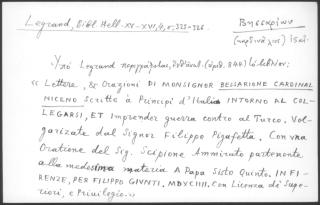 Legrand, Bibl Hell. XV-XVI, 4, σ. 325-326.
Βησσαρίων
(καρδινάλιος) Ἰταλ.
Ὑπὸ Legrand περιγράφεται,
« Lettere, & Orazioni DI MONSIGNOR BESSARIONE CARDINAL
NICENO Scritte à Principi d'Italia INTORNO AL COL-
LEGARSI, ET Imprender guerra contro al Turco, Vol-
garizate dal Signor Filippo Pigafetta. Con una
Oratione del Sig. Scipione Ammirato partenente
alla medesima materia A Papa Sisto Quinto. IN FI-
RENZE, PER FILIPPO GIUNTI. MDVCIIII, Con Licenza di Supe-
riori, e Privilegio.»